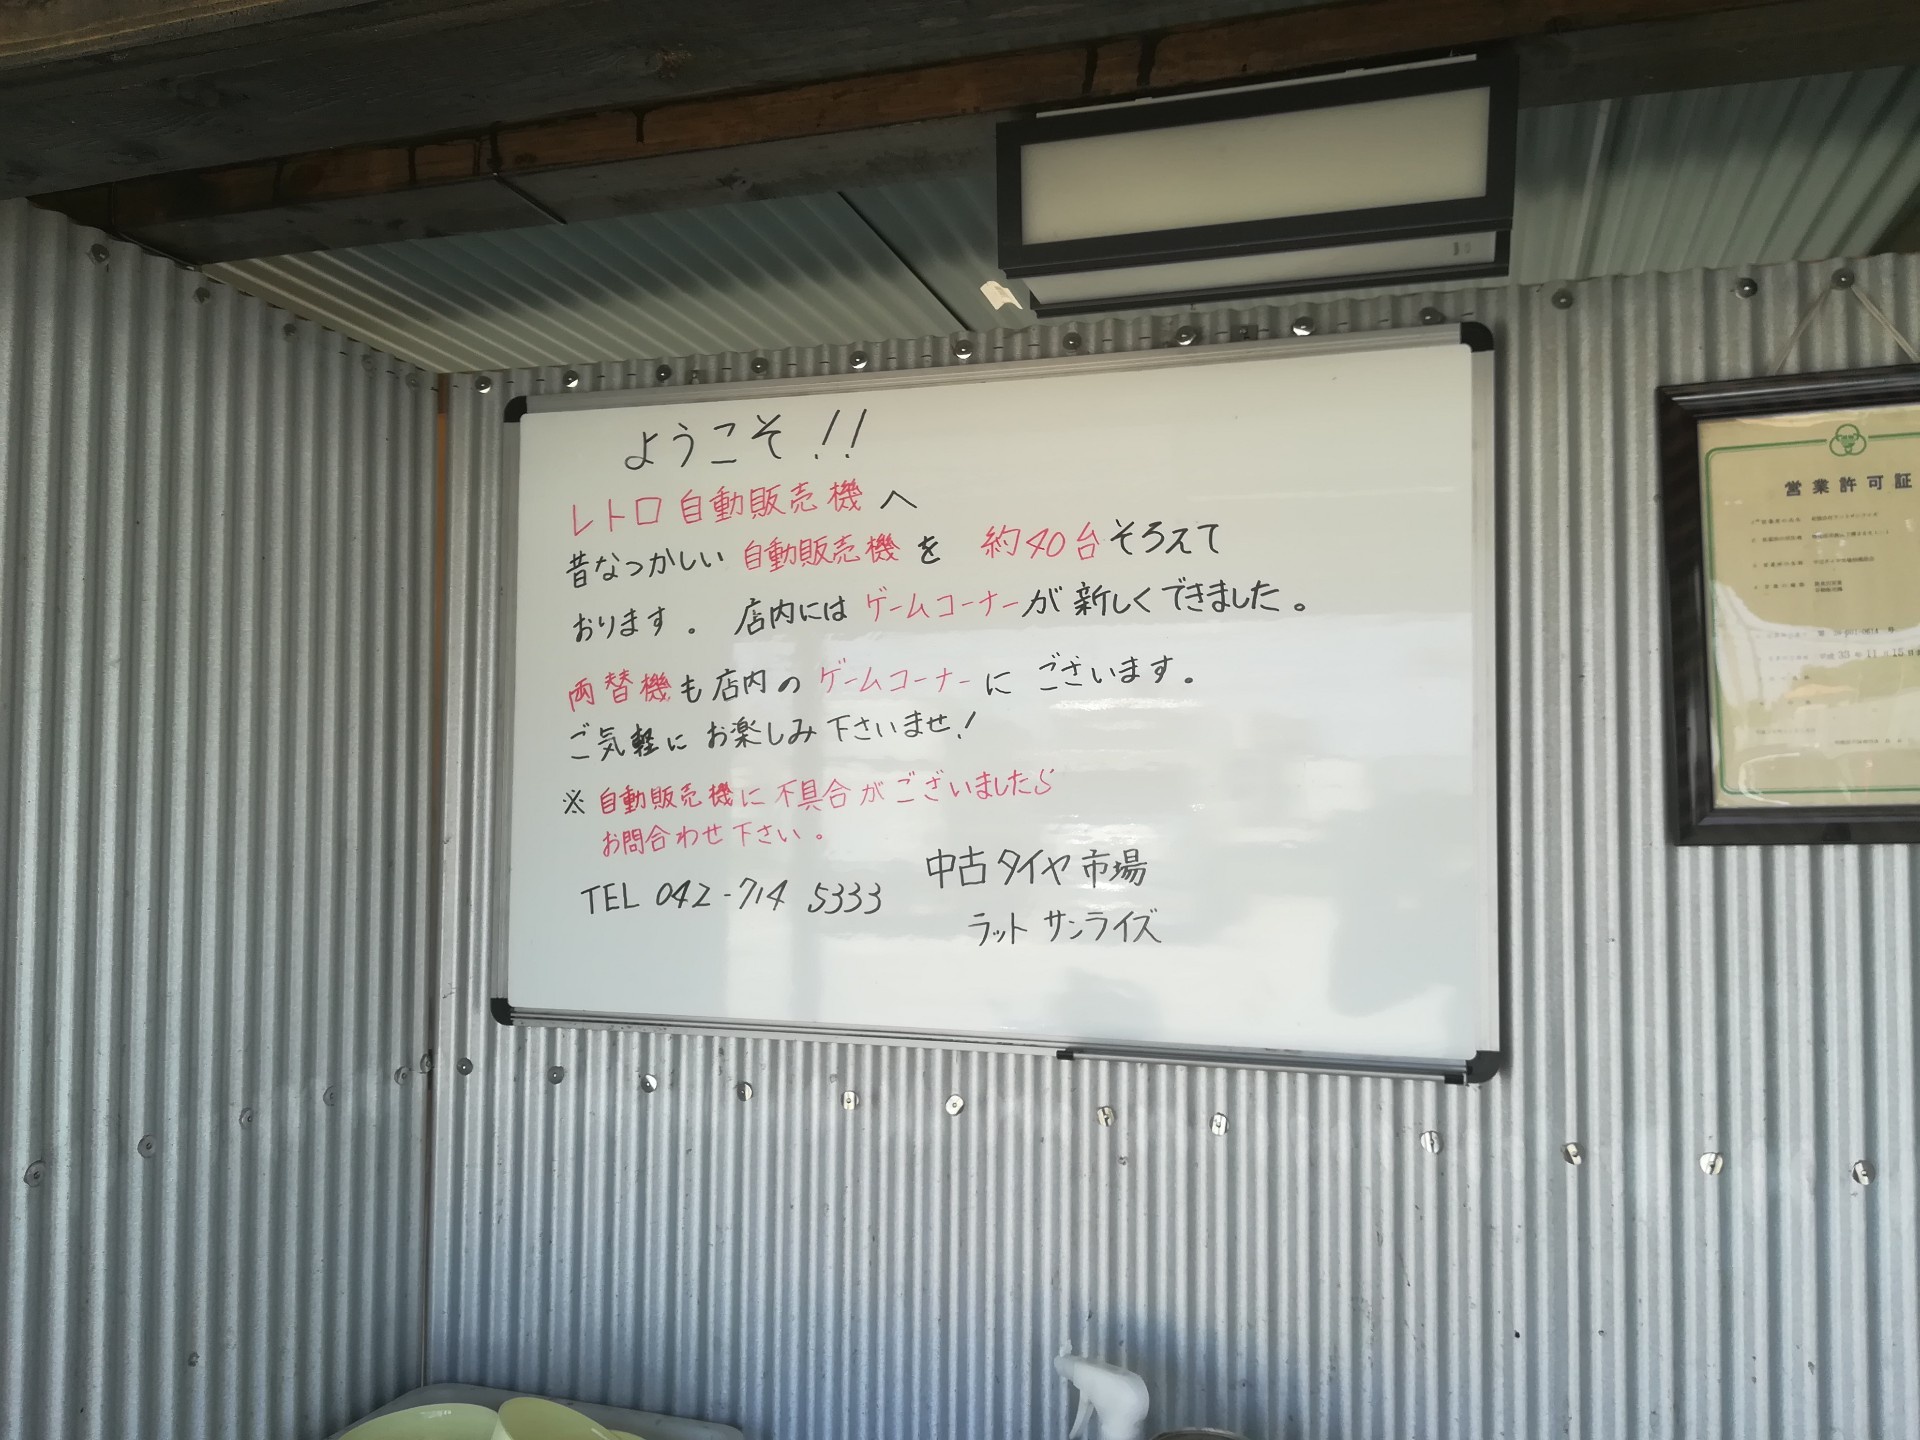 ようこそ!!
レトロ自動販売機へ
昔なつかしい 自動販売機を 約40台そろえて
おります。 店内には ゲームコーナーが新しくできました。
両替機も店内の ゲームコーナーに ございます。
ご気軽に お楽しみ下さいませ!
※ 自動販売機に不具合がございましたら
お問合わせ下さい。
TEL 042-714 5333
中古タイヤ市場
ラットサンライズ
営業許可証